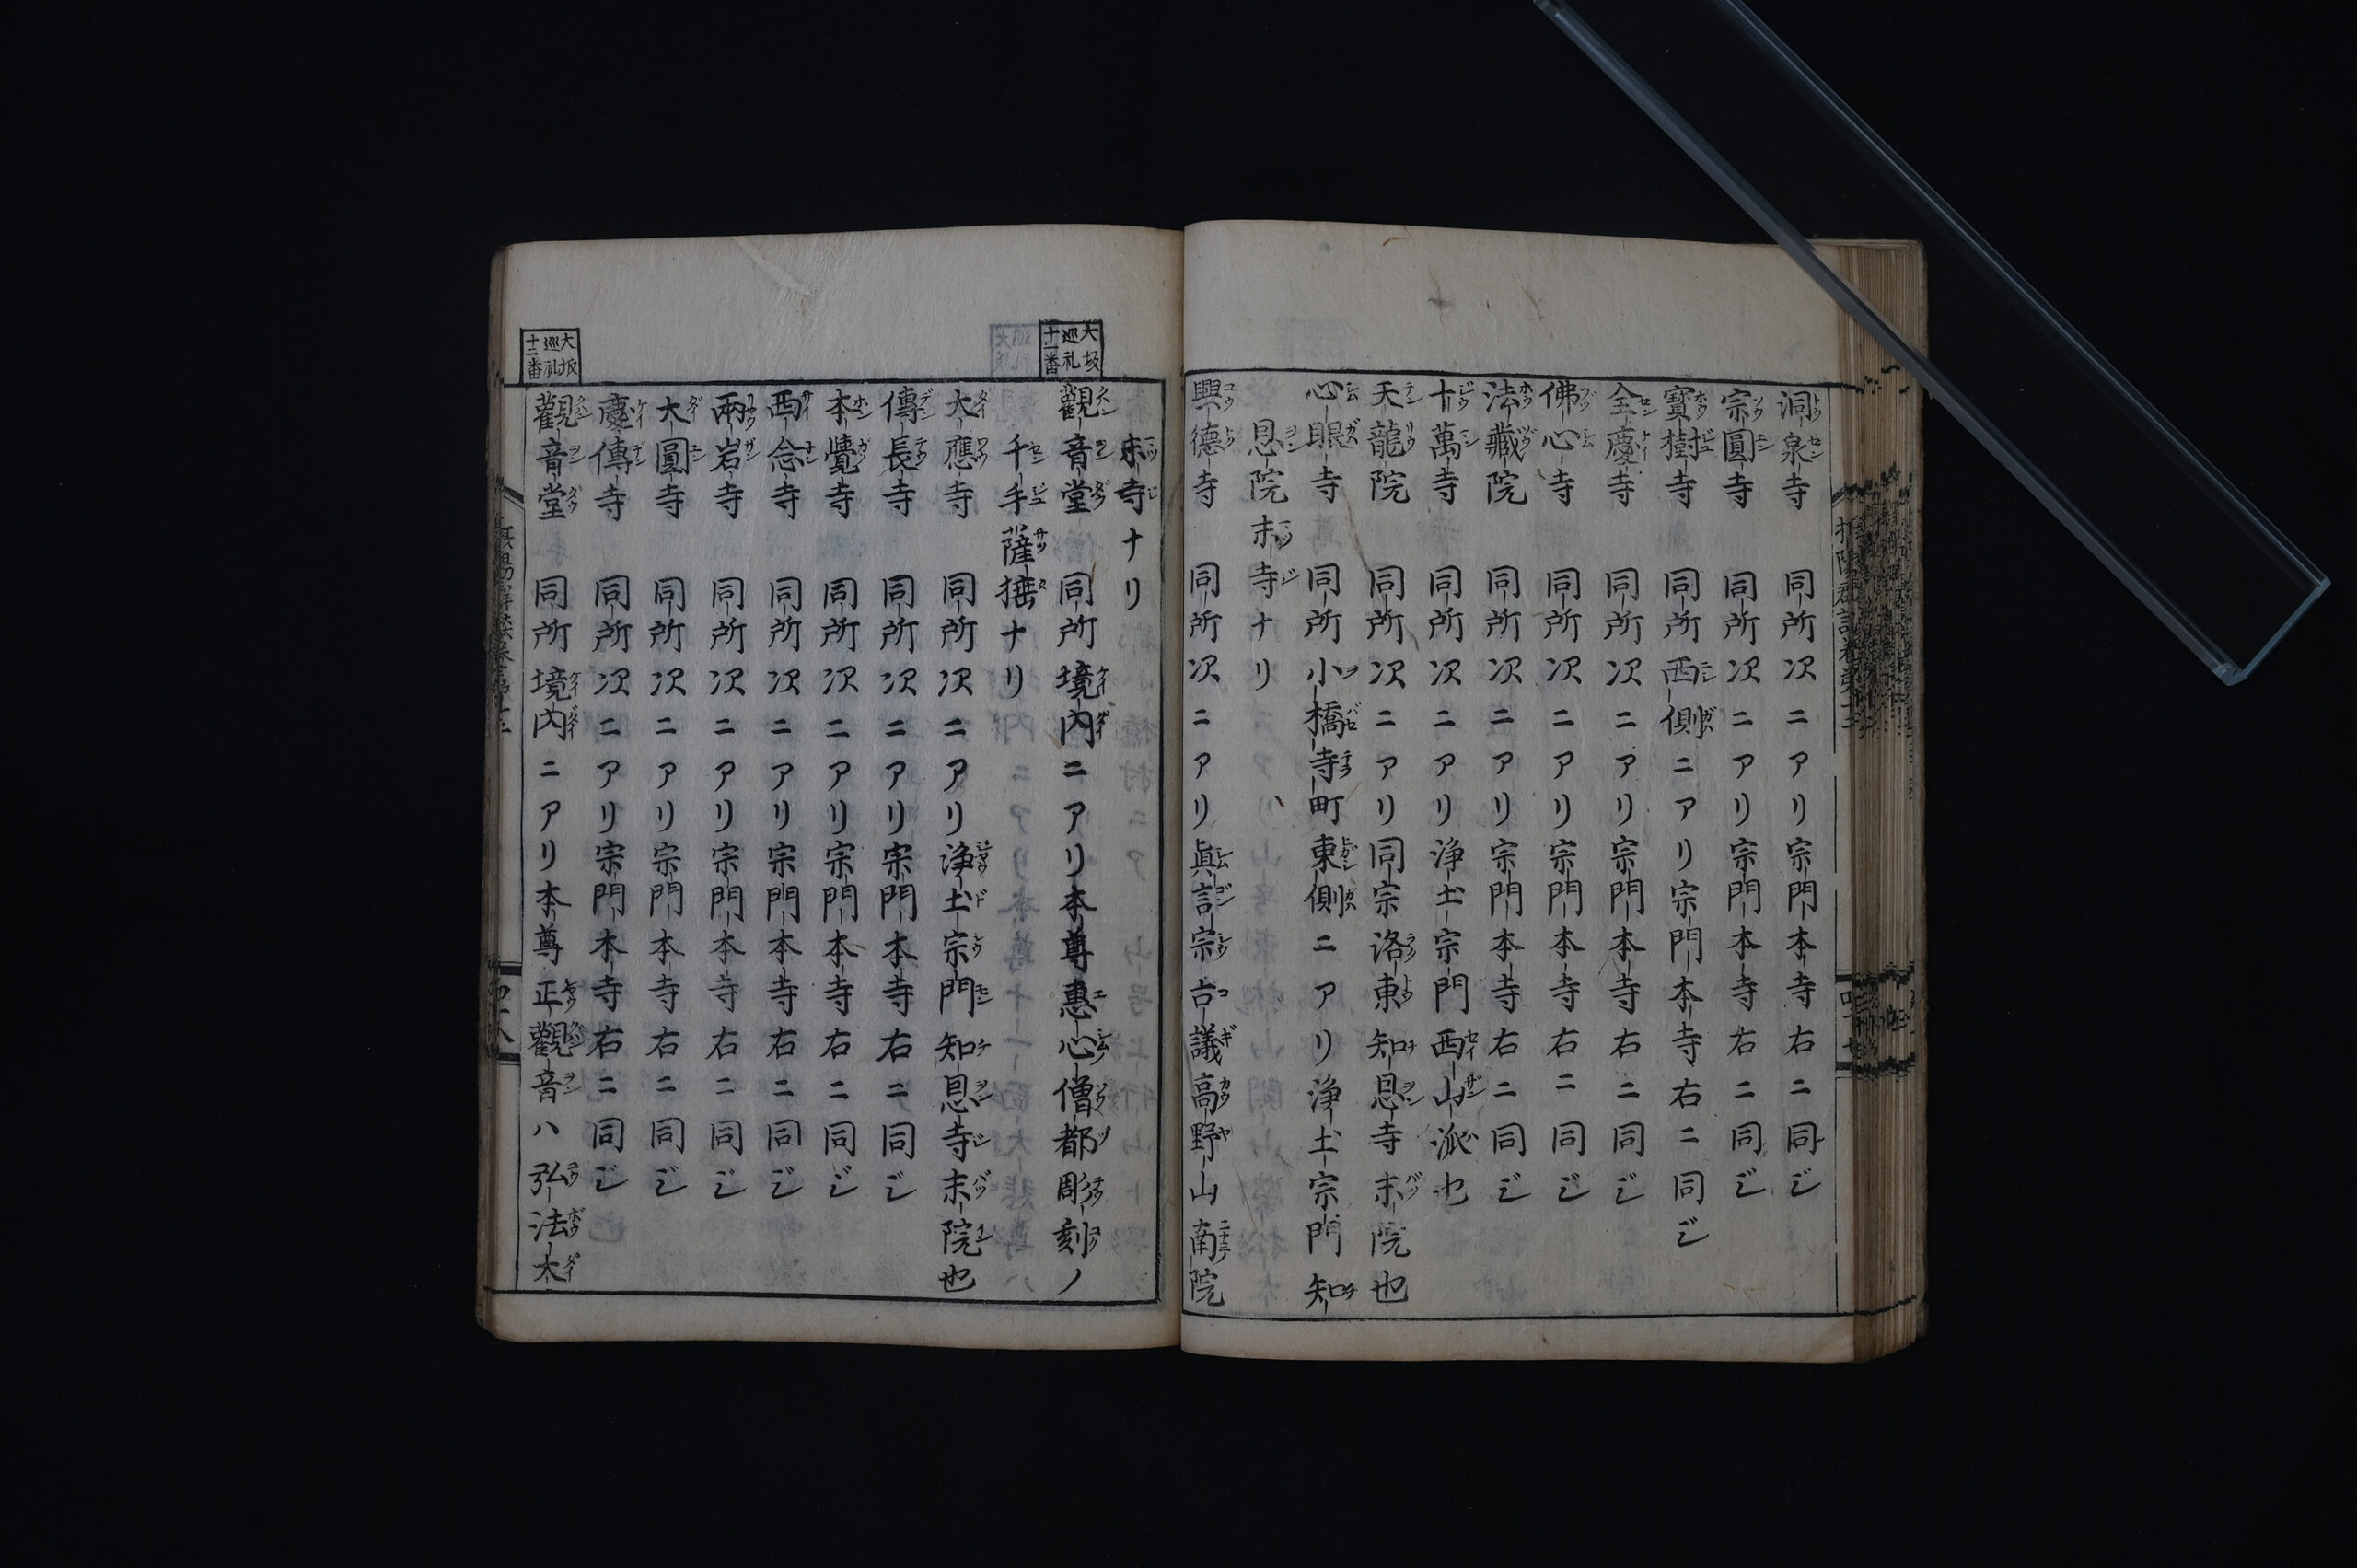 洞泉寺 同所次ニアリ宗門本寺右ニ同ジ
宗圓寺 同所次ニアリ宗門本寺右ニ同ジ
寶樹寺 同所西側ニアリ宗門本寺右ニ同ジ
全慶寺 同所次ニアリ宗門本寺右ニ同ジ
佛心寺 同所次ニアリ宗門本寺右ニ同ジ
法藏院 同所次ニアリ宗門本寺右ニ同ジ
十萬寺 同所次ニアリ浄土宗門西山派也
天龍院 同所次ニアリ同宗洛東知恩寺末院也
心眼寺 同所小橋寺町東側ニアリ浄土宗門知
恩院末寺ナリ
興德寺 同所次ニアリ眞言宗古議高野山南院
末寺ナリ
大坂巡礼十一番
觀音堂 同所境内ニアリ本尊惠心僧都彫刻ノ
千手薩捶ナリ
大應寺 同所次ニアリ浄土宗門知恩寺末院也
傳長寺 同所次ニアリ宗門本寺右ニ同ジ
本覺寺 同所次ニアリ宗門本寺右ニ同ジ
西念寺 同所次ニアリ宗門本寺右ニ同ジ
兩岩寺 同所次ニアリ宗門本寺右ニ同ジ
大圓寺 同所次ニアリ宗門本寺右ニ同ジ
慶傳寺 同所次ニアリ宗門本寺右ニ同ジ
大坂巡礼十二番
觀音堂 同所境内ニアリ本尊正觀音ハ弘法大